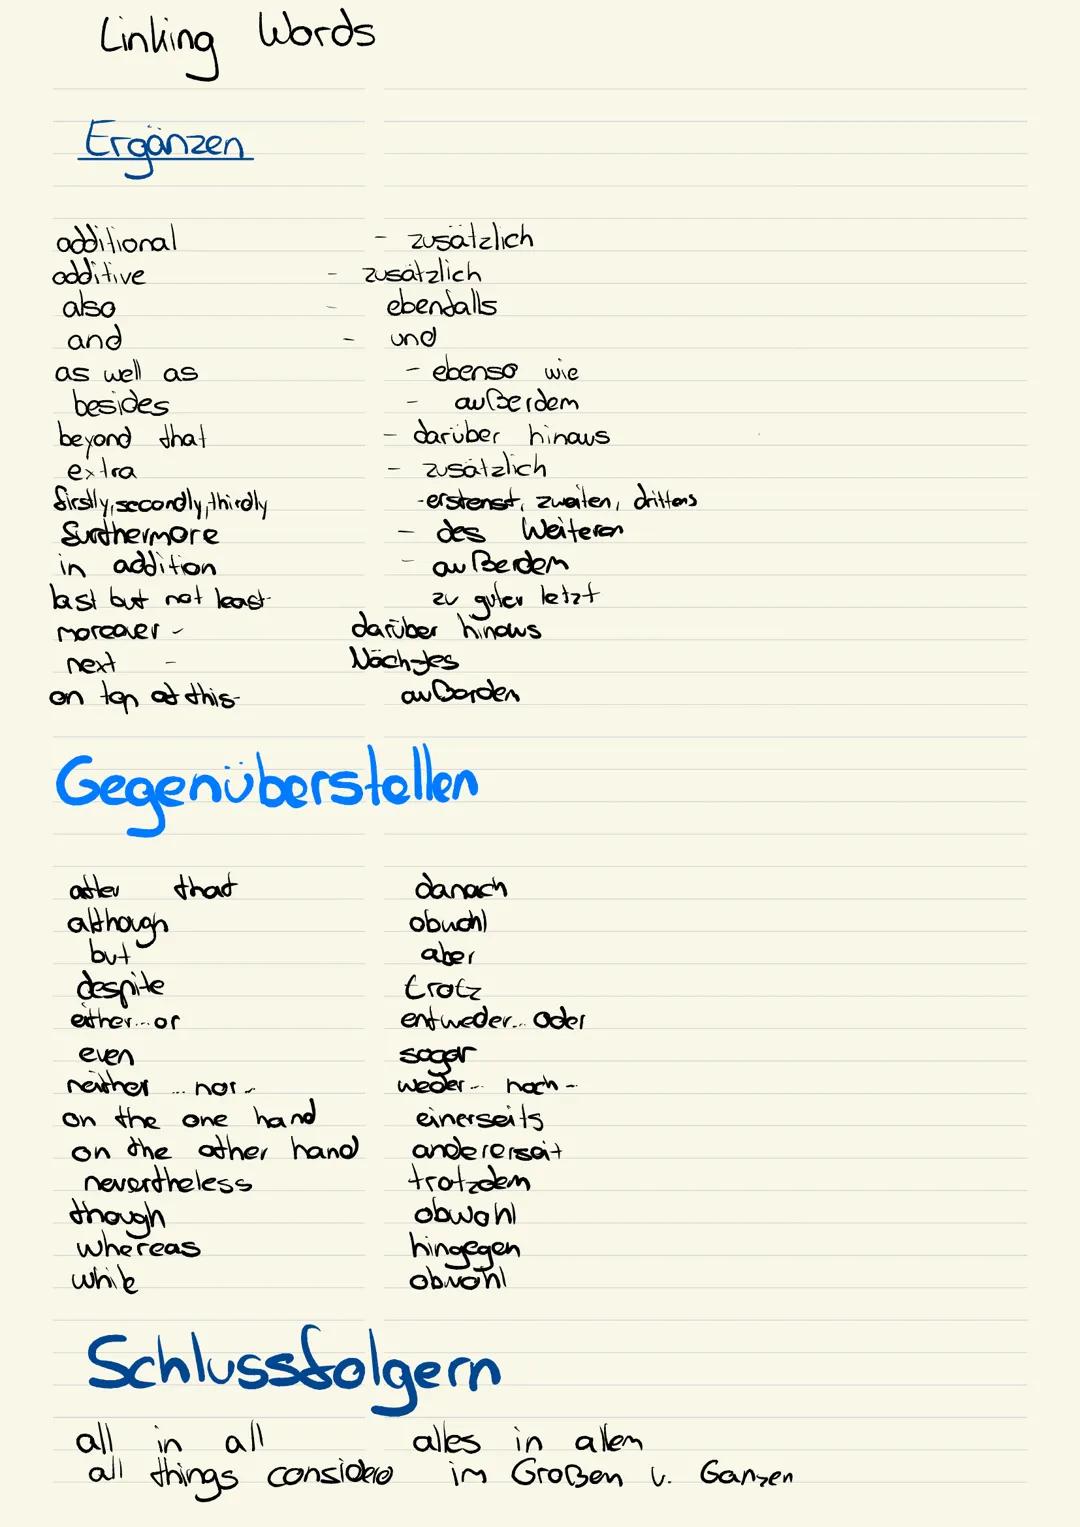 Linking Words
Ergänzen
additional - zusätzlich
additive - zusätzlich
also - ebenfalls
and - und
as well as - ebenso wie
besides - außerdem
beyond that - darüber hinaus
extra - zusätzlich
firstly, secondly, thirdly - erstenst, zweiten, drittens
furthermore - des Weiteren
in addition - außerdem
last but not least - zu guter letzt
moreover - darüber hinaus
next - Nächstes
on top of this - außerden
Gegenüberstellen
after that danach
although obwohl
but aber
despite trotz
either... or entweder... oder
even sogar
neither ... nor .. weder .. noch ..
on the one hand einerseits
on the other hand andererseit
nevertheless trotzdem
though obwohl
whereas hingegen
while obwohl
Schlussfolgern
all in all alles in allem
all things considere im Großen u. Ganzen